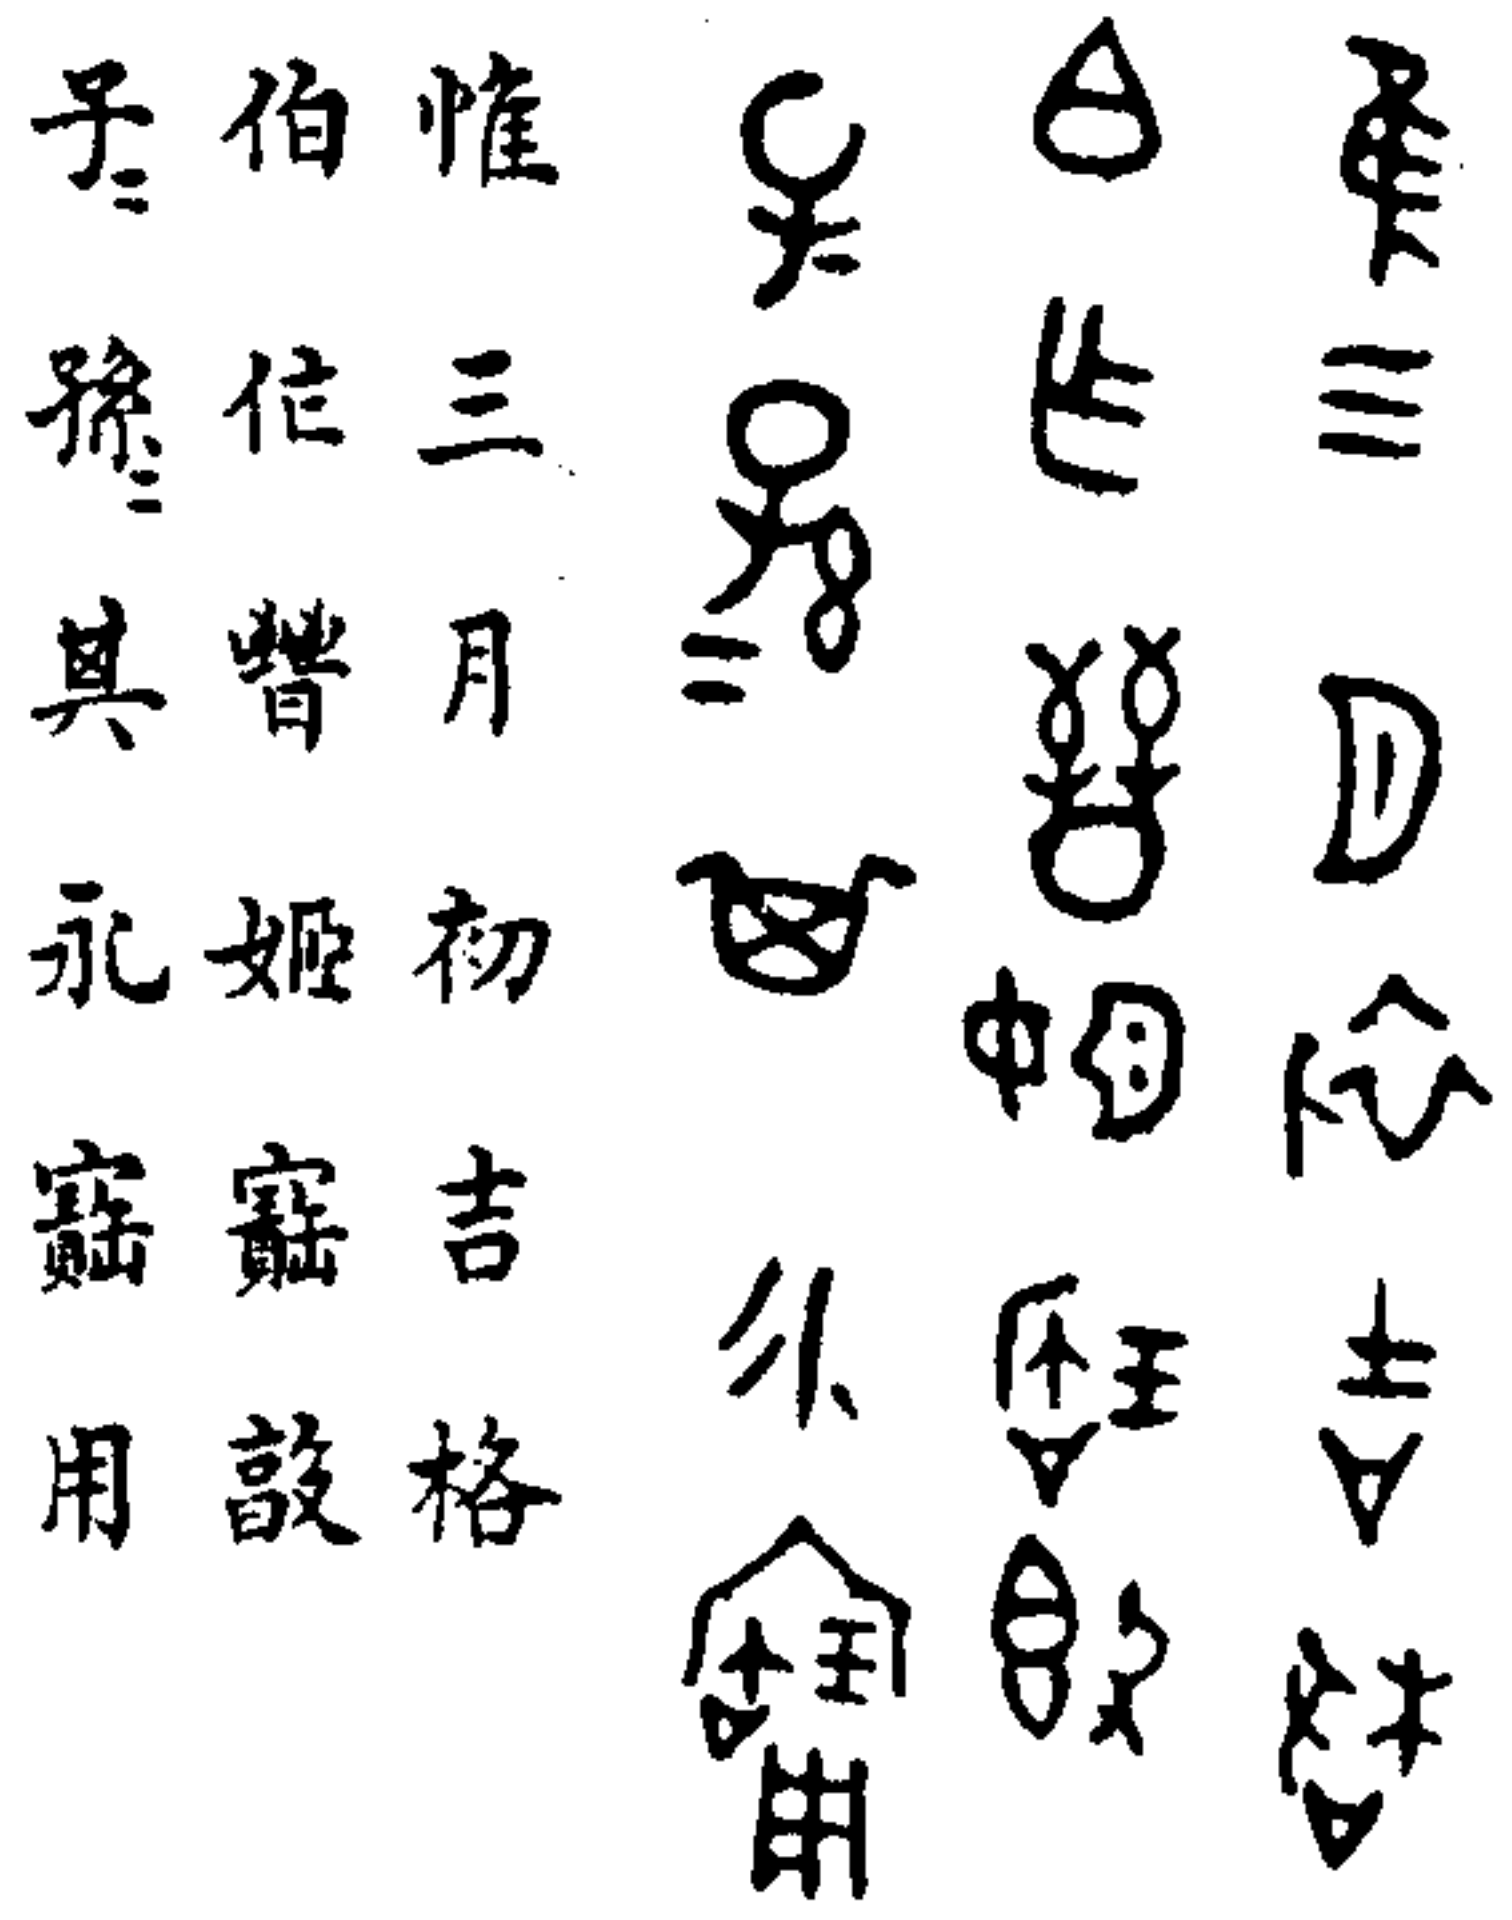 隹三月初吉格
白乍晉姬寶𣪘
子〻孫〻其永寶用
惟三月初吉格
伯作晉姬寶敦
子〻孫〻其永寶用